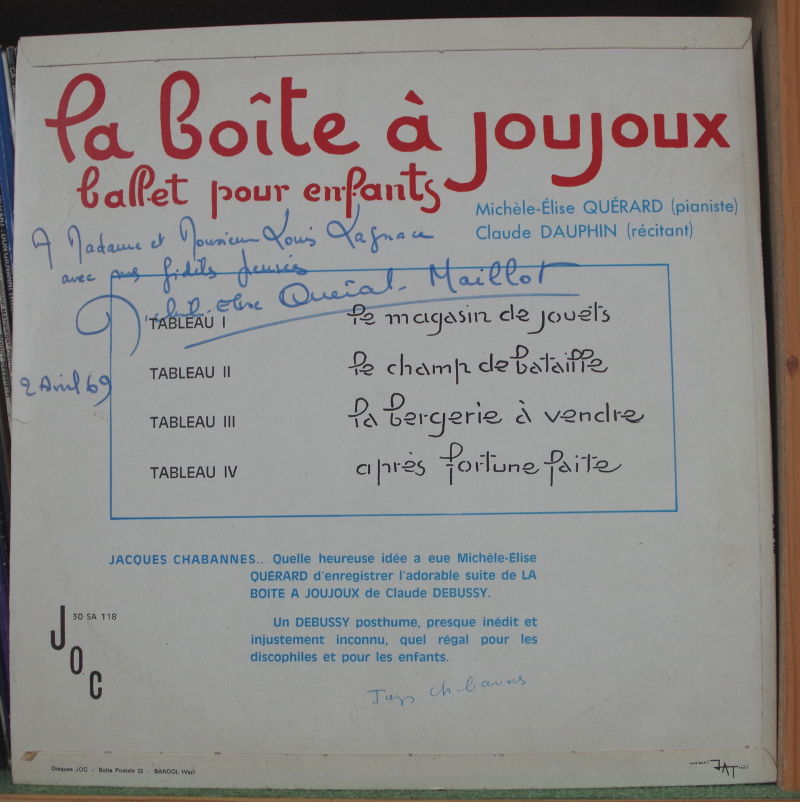 la boîte à joujoux
ballet pour enfants
Michèle-Élise QUÉRARD (pianiste)
Claude DAUPHIN (récitant)
A Madame et Monsieur Louis
avec nos fidèles pensées
Elise Quérard-Maillot
2 Avril 69
TABLEAU I le magasin de jouets
TABLEAU II le champ de bataille
TABLEAU III la bergerie à vendre
TABLEAU IV après fortune faite
JACQUES CHABANNES... Quelle heureuse idée a eue Michèle-Élise
QUÉRARD d'enregistrer l'adorable suite de LA
BOITE A JOUJOUX de Claude DEBUSSY.
Un DEBUSSY posthume, presque inédit et
injustement inconnu, quel régal pour les
discophiles et pour les enfants.
30 SA 118
JOC
Disques JOC - Boite Postale 22 - BANDOL (Var)